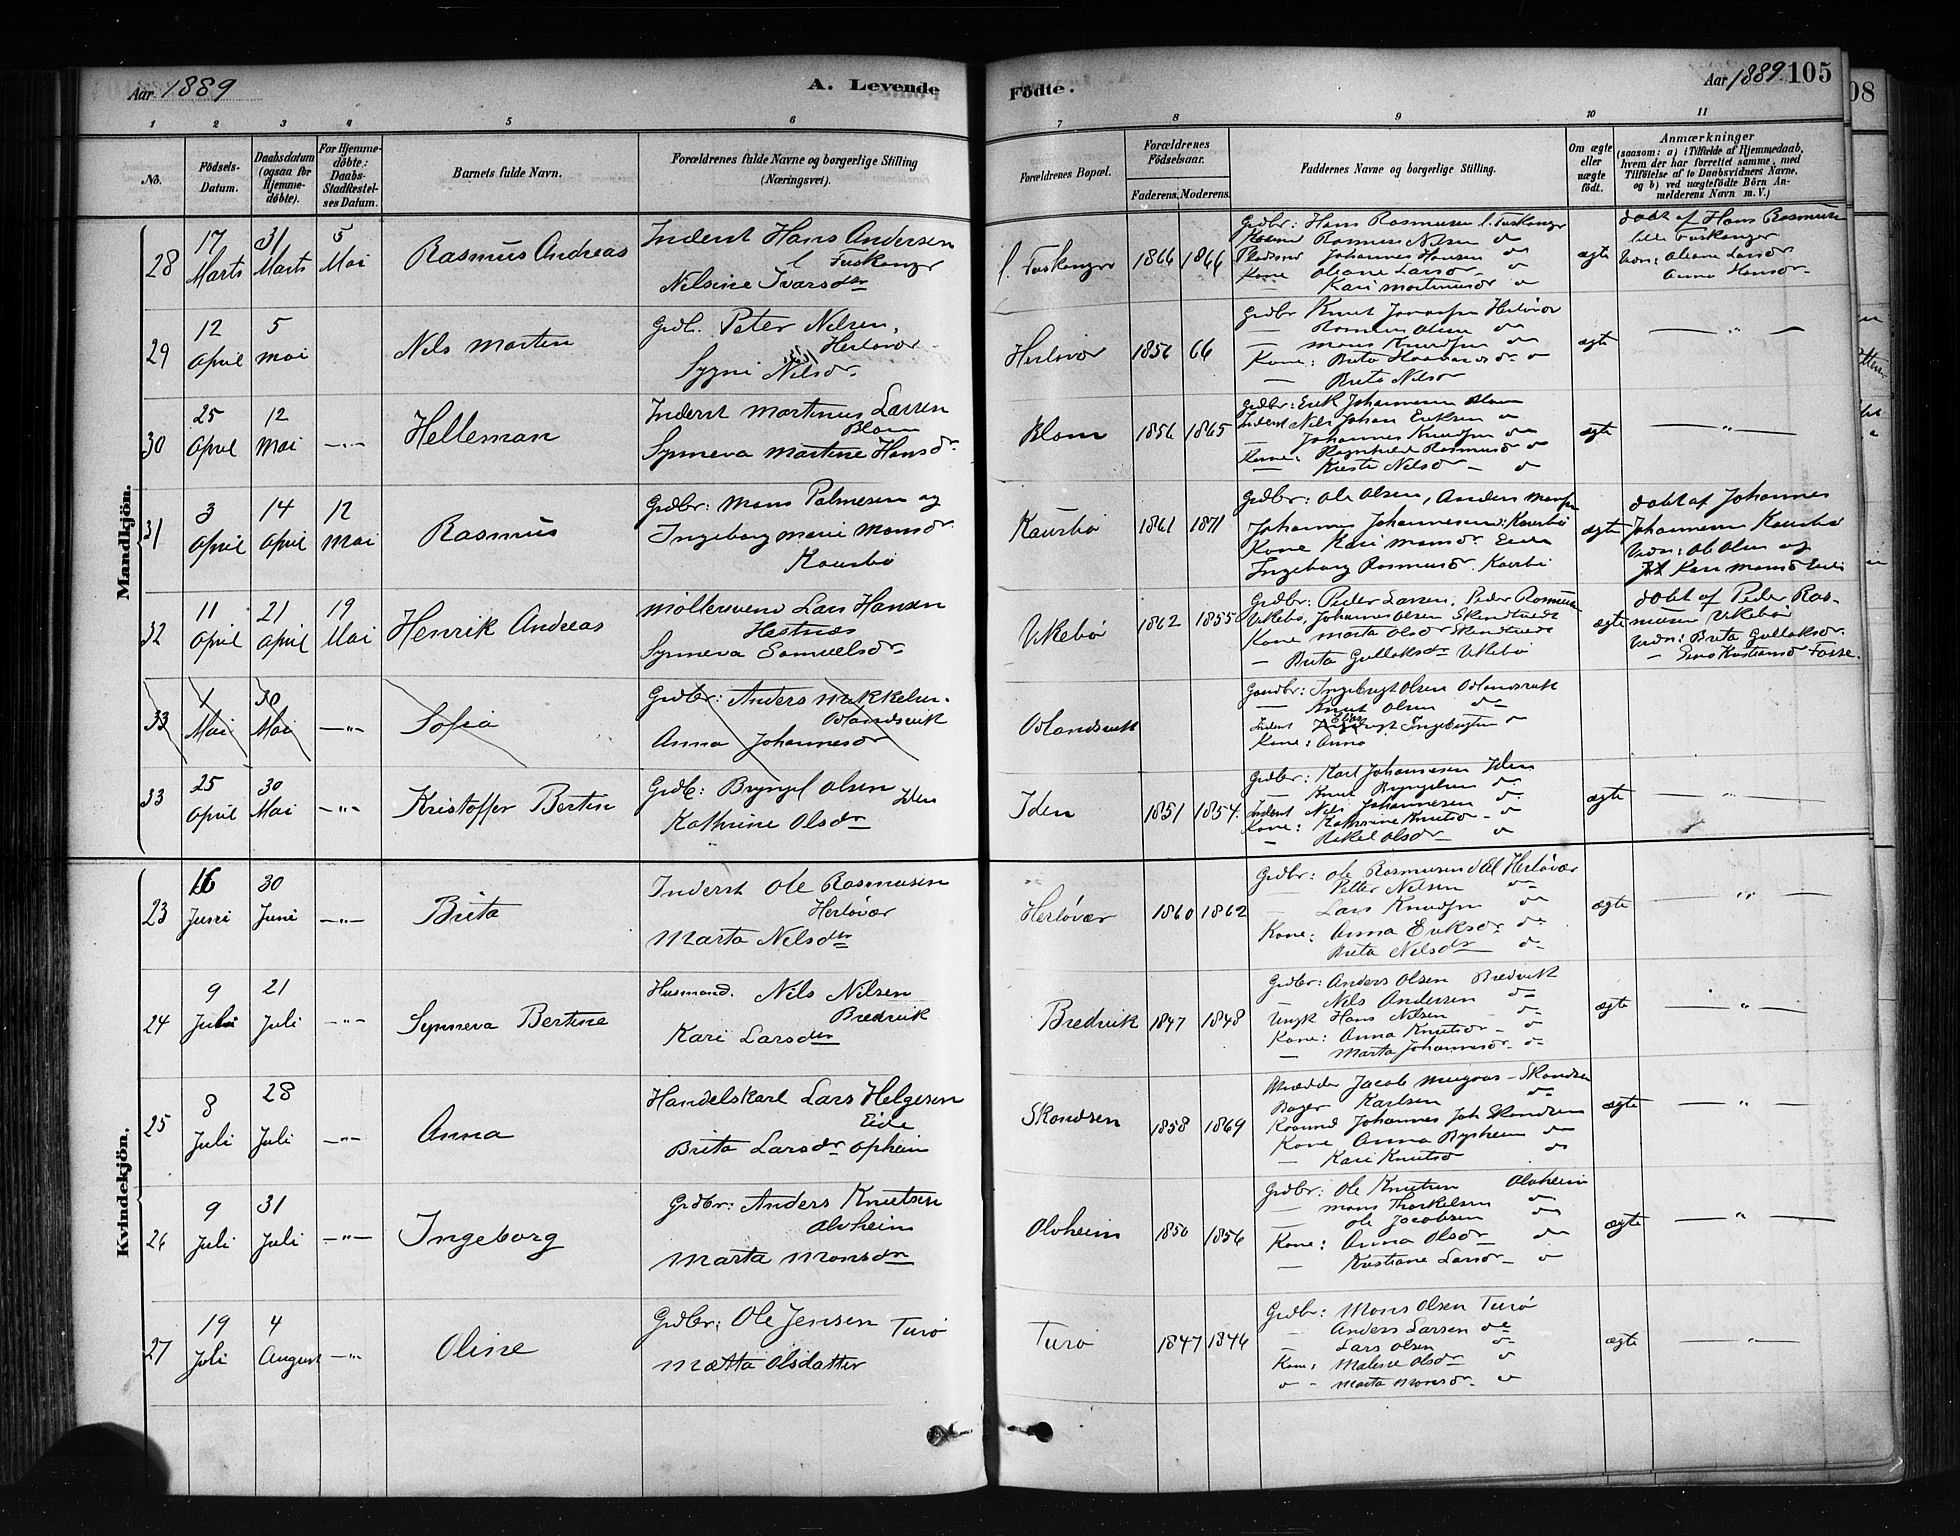 Aar 1889
A. Levende
Födte.
Aar 1889. 105
08
1 2 3 4 5 6 7 8 9 10 11
No.
Födsels-
Datum.
Daabsdatum
(ogsaa for
Hjemme-
döbte).
For Hjemme-
döbte;
Daabs-
Stadfæstel-
ses Datum.
Barnets fulde Navn.
Forældrenes fulde Navne og borgerlige Stilling
(Næringsvei).
Forældrenes Bopæl.
Forældrenes
Födselsaar.
Faderens. Moderens.
Faddernes Navne og borgerlige Stilling.
Om ægte
eller
uægte
födt.
Anmærkninger
(saasom: a) i Tilfælde af Hjemmedaab,
hvem der har forrettet samme, med
Tilföielse af to Daabsvidners Navne,
og b) ved uægtefödte Börn An-
melderens Navn m. V.)
Mandkjön.
28
17 Marts
31 Marts
5 Mai
Rasmus Andreas
Inderst Hans Andersen
l. Fuskanger
Nilsine Ivarsdr
l. Fuskanger
1866 1866
Grdbr: Hans Rasmusen l. Fuskanger
Rasmus Nilsen do
Pladsmd Johannes Hansen do
Kone Oliane Larsdr do
— Kari Martinusdr do
ægte
döbt af Hans Rasmusen
lille Fuskanger
Vidn: Oliane Larsdr
Anna Hansdr
29
12 April
5 Mai
Nils Marten
Grdb. Peter Nilsen,
Herløvær
Sygni Nilsdr.
Herløvær
1856 66
Grdbr Knut Herløvær
— Rasmus Olsen do
— Mons Knudsen do
Kone: Brita do
— Brita Nilsdr
ægte
— " —
30
25 April
12 Mai
—"—
Helleman
Inderst Martinus Larsen
Blom
Synneva Martine Hansdr.
Blom
1856 1865
Grdbr: Erik Johannesen Blom
Inderst Nils Johan Eriksen do
— Johannes Knudsen do
Kone: Ragnhild Rasmusdr do
— Kirsti Nilsdr — do
ægte
— " —
31
3 April
14 April
12 Mai
Rasmus
Grdbr: Mons Palmesen og
Ingeborg Marie Monsdr
Kaursbø
Kaursbø
1861 1871
Grdbr: Ole Olsen, Anders Monsen
Johannes Johannesen: Kaursbø
Kone Kari Monsdr. Eide
Ingeborg Rasmusdr. Kaursbø
ægte
döbt af Johannes
Johannesen Kaursbø
Vidn: Ole Olsen og
Kari Monsdr Eide
32
11 April
21 April
19 Mai
Henrik Andreas
Møllersvend Lars Hansen
Hestnes
Synneva Samuelsdr
Ukebø
1862 1855
Grdbr: Peder Larsen, Peder Rasmusen
Ukebø, Johannes Olsen Skjendtveds
Kone Marta Olsdr Skjendtveds
— Brita Gullaksdr Ukebø
ægte
döbt af Peder Ras-
musen Ukebø
Vidn: Brita Gullaksdr.
— Kristiansdr Fosse.
33
1 Mai
30 Mai
—"—
Sofia
Grdbr: Anders Mikkelsen.
Odlandsvik
Anna Johannesdr
Odlandsvik
Gaardbr: Ingebrigt Olsen Odlandsvik
— Knut Olsen do
Inderst Elias Ingebrigtsen do
Kone: Anna
33
25 April
30 Mai
—"—
Kristoffer Bertin
Grdb: Bryngel Olsen
Iden
Kathrine Olsdr
Iden
1851 1854.
Grdbr: Karl Johannesen Iden
— Knut Bryngelsen do
Inderst Nils Johannesen do
Kone: Kathrine Knutsdr — do
— Rakel Olsdr — do
ægte
— " —
Kvindekjön.
23
16 Juni
30 Juni
—"—
Brita
Inderst Ole Rasmusen
Herløvær
Marta Nilsdr
Herløvær
1860 1862
Grdbr: Ole Rasmusen Herløvær
Petter Nilsen do
— Lars Knudsen do
Kone: Anna Eriksdr do
Brita Nilsdr do
ægte
— " —
24
9 Juli
21 Juli
—"—
Synneva Bertine
Husmand. Nils Nilsen
Bredvik
Kari Larsdr
Bredvik
1847 1848
Grdbr: Anders Olsen Bredvik
— Nils Andersen do
Ungk Hans Nilsen — do
Kone: Anna Knutsdr — do
— Marta Johannesdr — do
ægte
— " —
25
8 Juli
28 Juli
—"—
Anna
Handelskarl Lars Helgesen
Eide
Brita Larsdr Opheim
Skandsen
1858 1869
Jacob Skandsen
Bager Karlsen do
Johannes Joh Skandsen
Kone Anna Bysheim do
— Kari Knutsdr do
ægte
— " —
26
9 Juli
31 Juli
—"—
Ingeborg
Grdbr: Anders Knutsen
Alvheim
Marta Monsdr
Alvheim
1850 1856
Grdbr: Ole Knutsen Alvheim
— Mons Thorkelsen do
— Ole Jacobsen do
Kone: Anna Olsdr do
— Kristiane Larsdr — do
ægte
— " —
27
19 Juli
4 August
—"—
Oline
Grdbr: Ole Jensen Turø
Mætta Olsdatter
Turø
1847 1846
Grdbr: Mons Olsen Turø
— Anders Larsen do
— Lars Olsen do
Kone: Malene Olsdr do
do - Marta Monsdr. do
ægte
— " —